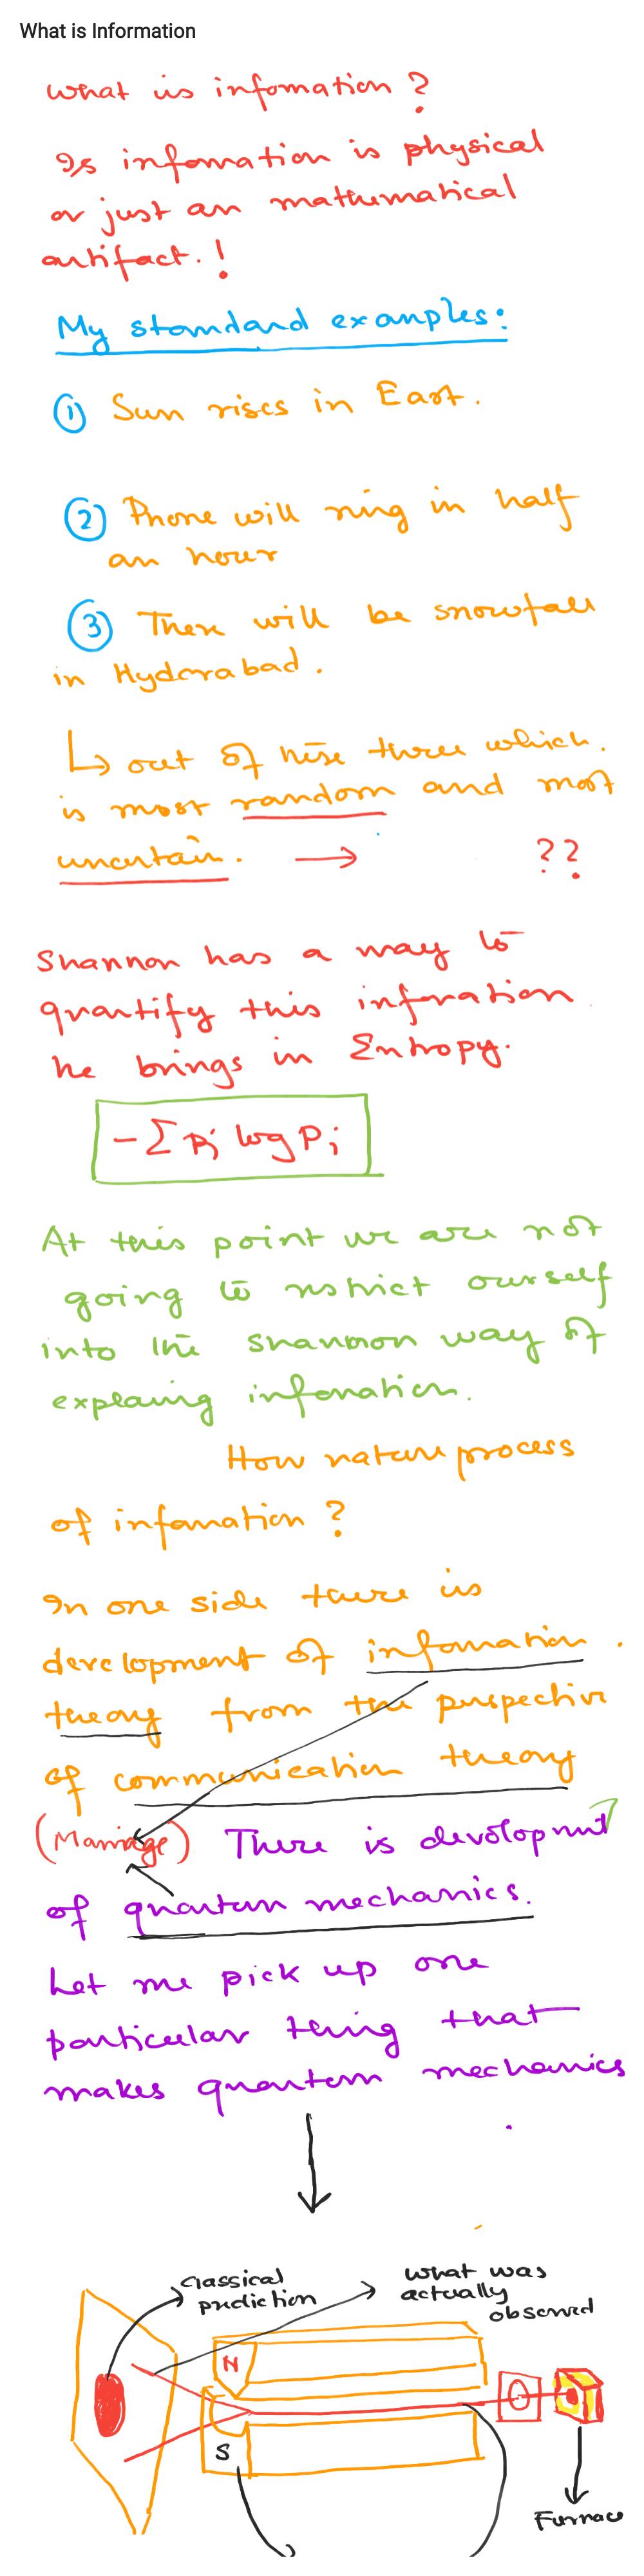 What is Information
What is infomation ?
Is infomation is physical
or just an mathematical
artifact. !
My standard examples:
① Sun rises in East.
② Phone will ring in half
an hour
③ There will be snowfall
in Hyderabad.
↳ out of these three which.
is most random and most
uncertain. → ??
Shannon has a way to
quantify this infomation
he brings in Entropy.
- Σ Pi log Pi
At this point we are not
going to restrict ourself
into the shannon way of
explaing infomation.
How nature process
of infomation ?
In one side there is
development of infomation.
theory from the perspective
of communication theory
(Marriage) There is development
of quantum mechanics.
Let me pick up one
particular thing that
makes quantum mechanics
classical
prediction
what was
actually
observed
N
S
Furnace